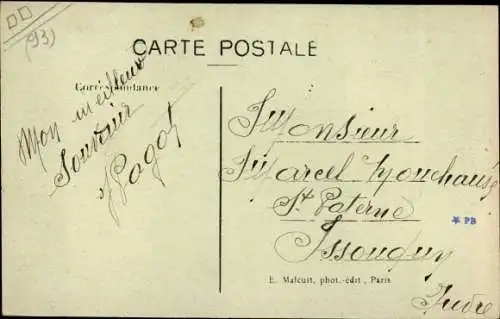 (93)
CARTE POSTALE
Correspondance
Mon meilleur
Souvenir
Pagot
Monsieur
Marcel
St Paterne
Issoudun
Indre
* PB
E. Malcuit, phot.-édit., Paris